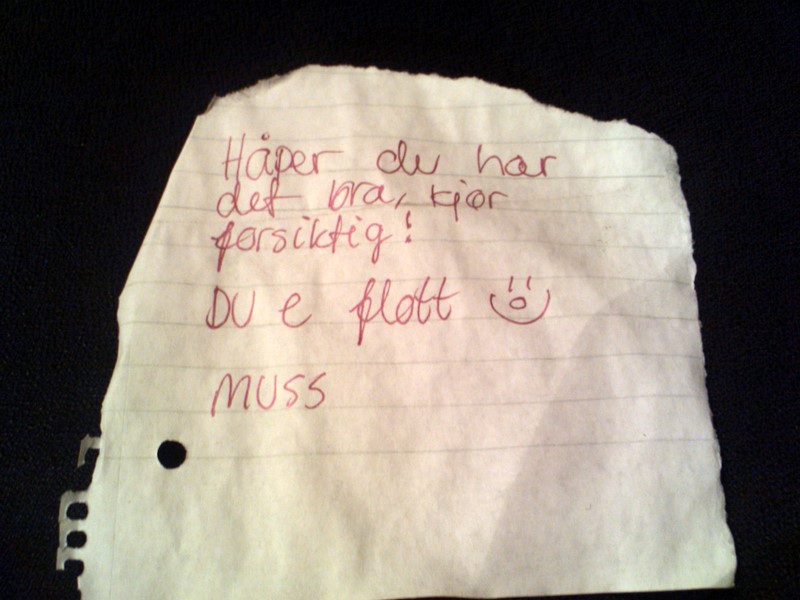 Håper du har
det bra, kjør
forsiktig!
DU e fløtt
MUSS